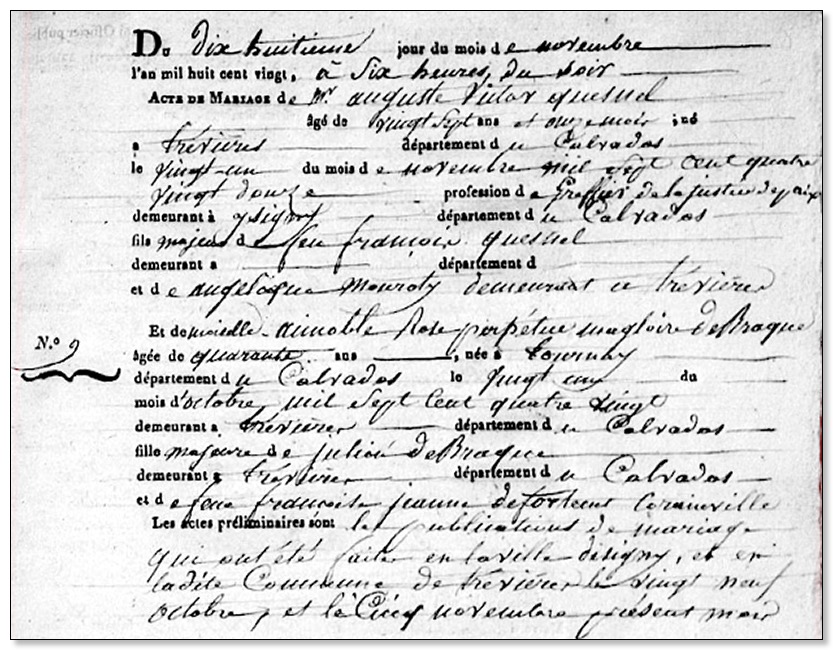 Du dix huitieme jour du mois de novembre
l'an mil huit cent vingt, à Six heures, du Soir
Acte de Mariage de Mr auguste Victor quesnel
âgé de vingt Sept ans et onze mois ; né
a trévieres département du Calvados
le vingt-un du mois de novembre mil Sept cent quatre
vingt douze profession de Greffier de la justice de paix
demeurant à ysigny département du Calvados
fils majeur de feu françois quesnel
demeurant a département d
et de angelique demeurant a trévieres
N.o 9
Et demoiselle aimable Rose perpétue magloire de Braque
âgée de quarante ans , née à tournay
département du Calvados le vingt un du
mois d'octobre mil Sept Cent quatre vingt
demeurant a trévieres département du Calvados
fille majeure de julien de Braque
demeurant a trévieres département du Calvados
et de feue francoise jeanne
Les actes préliminaires sont les publications de mariage
qui ont été faites en la ville disigny, et en
ladite Commune de trévieres le vingt neuf
octobre, et le Cinq novembre présent mois